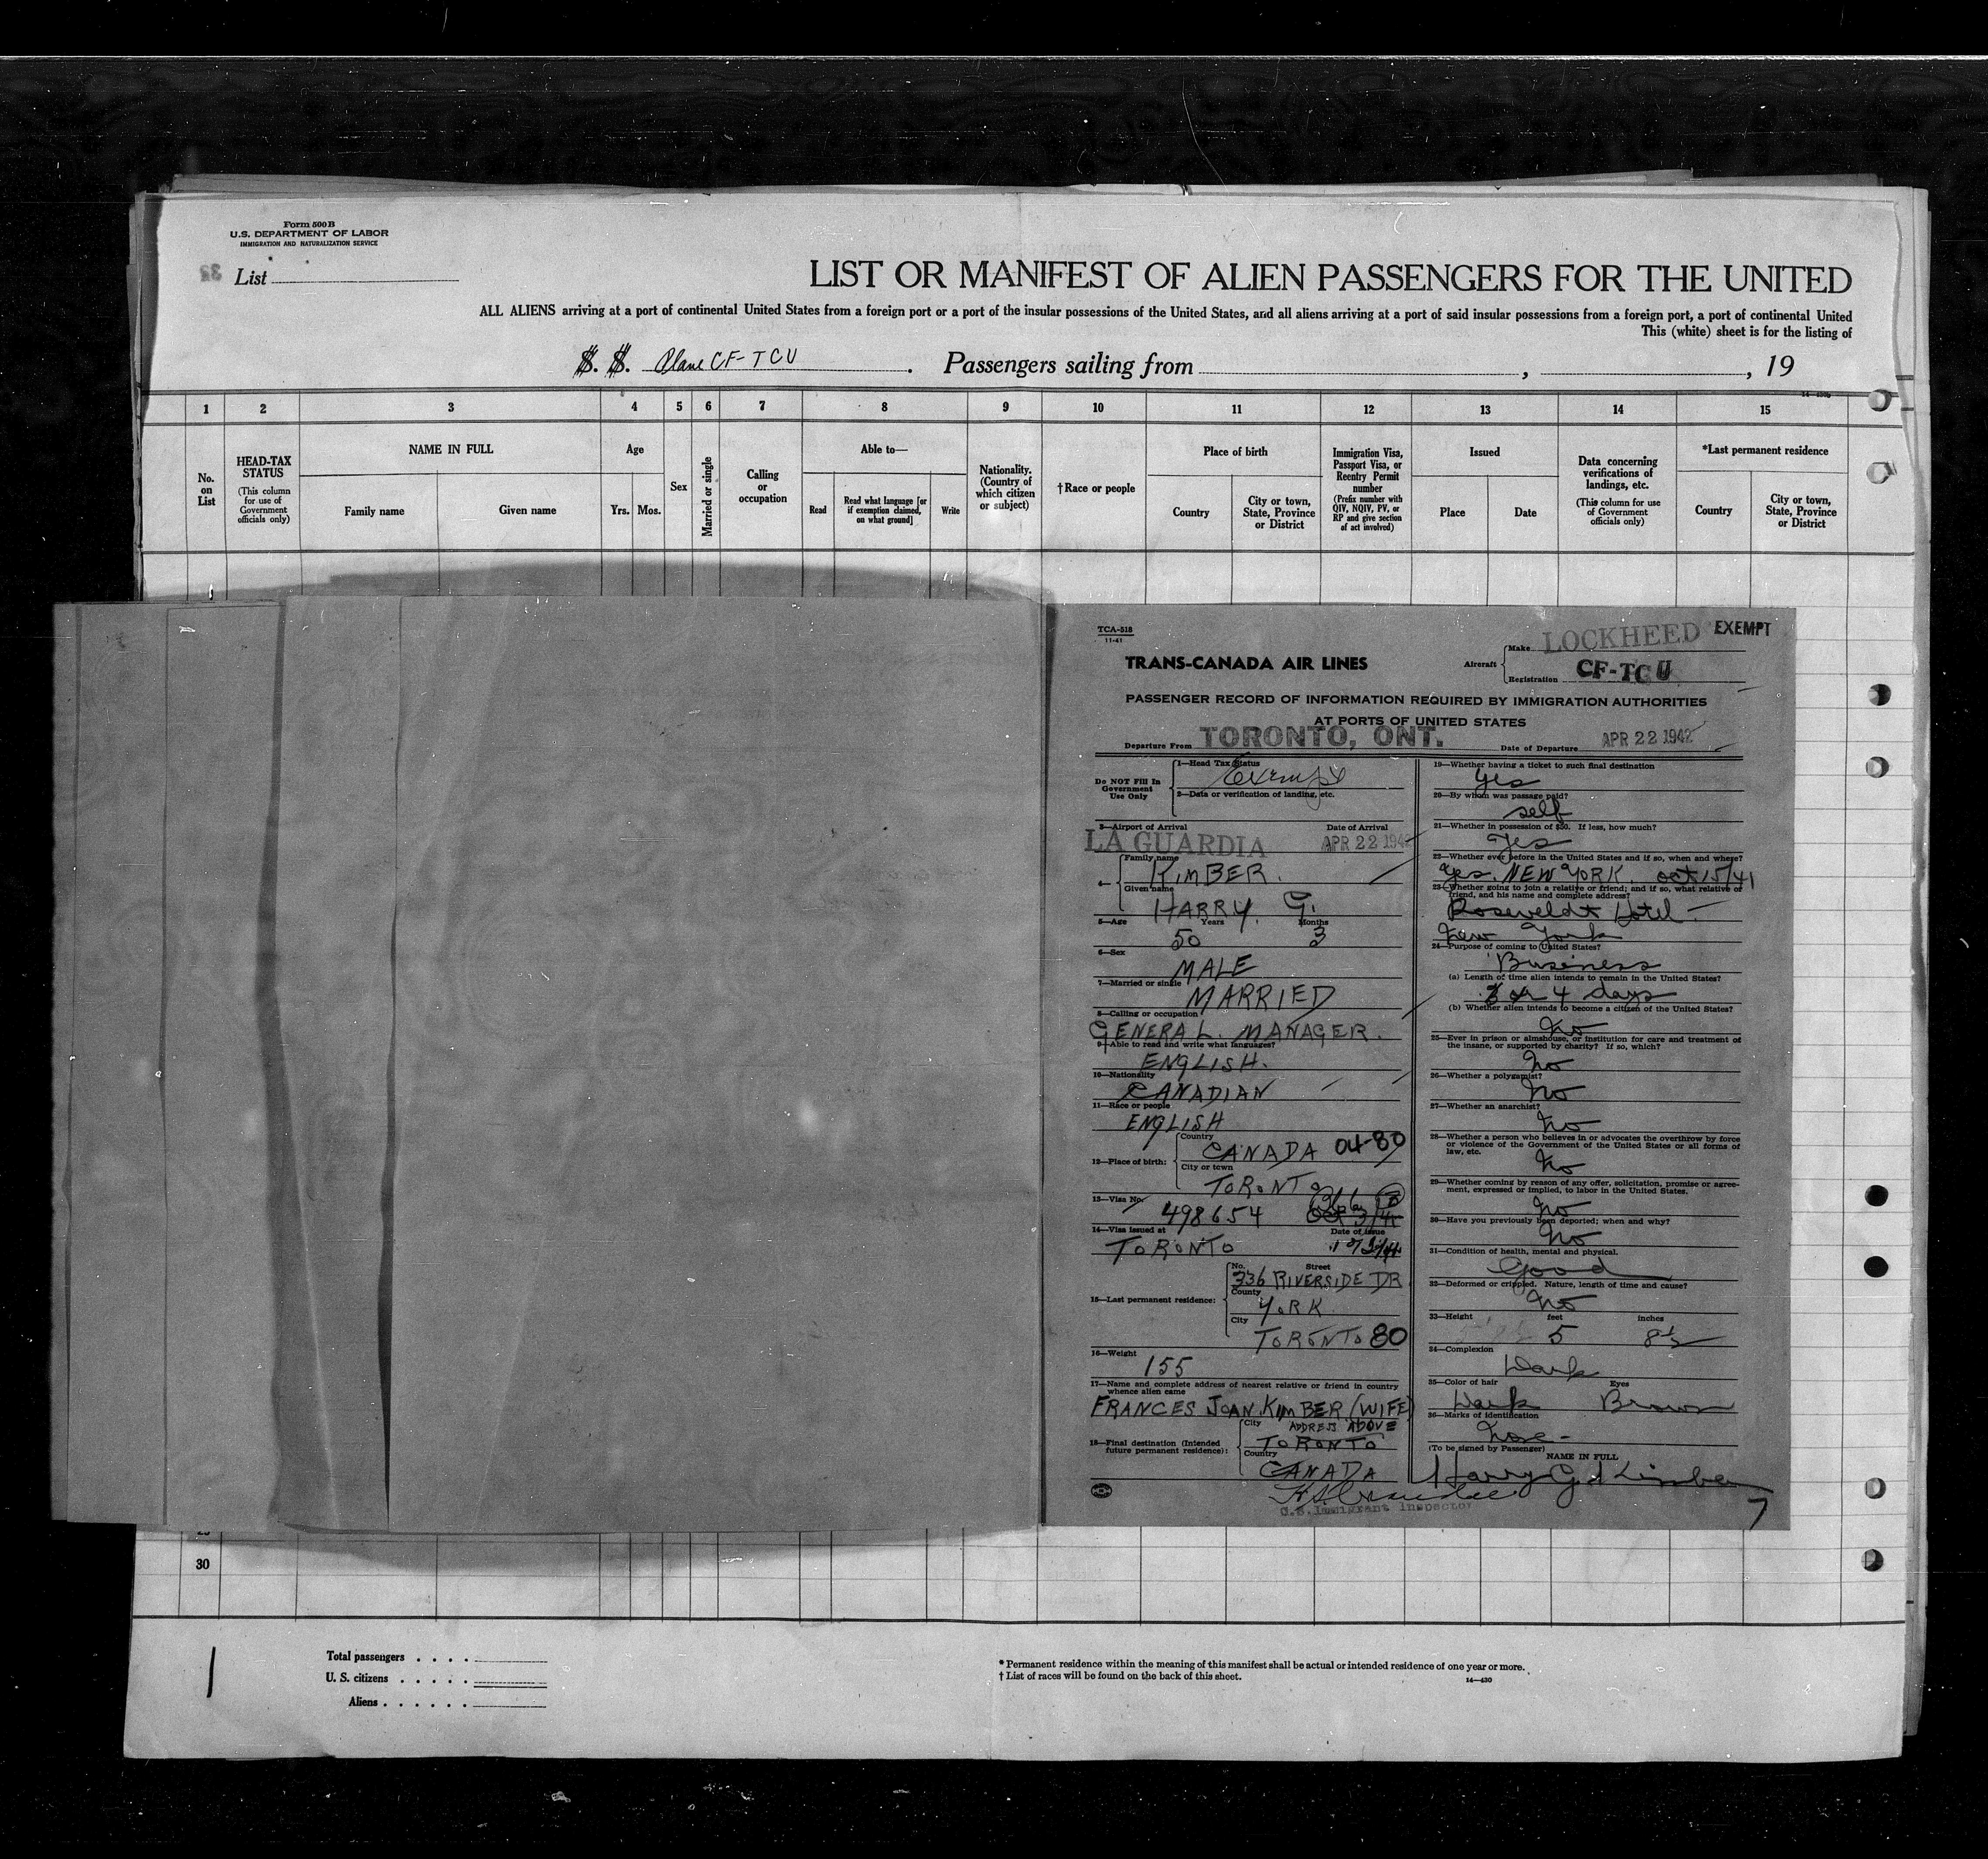 Form 500 B
U.S. DEPARTMENT OF LABOR
IMMIGRATION AND NATURALIZATION SERVICE
List
LIST OR MANIFEST OF ALIEN PASSENGERS FOR THE UNITED
ALL ALIENS arriving at a port of continental United States from a foreign port or a port of the insular possessions of the United States, and all aliens arriving at a port of said insular possessions from a foreign port, a port of continental United
This (white) sheet is for the listing of
S. S. Plane CF-TCU . Passengers sailing from , , 19
1 2 3 4 5 6 7 8 9 10 11 12 13 14 15
No. on List
HEAD-TAX STATUS
(This column for use of Government officials only)
NAME IN FULL
Family name Given name
Age
Yrs. Mos.
Sex
Married or single
Calling or occupation
Able to—
Read
Read what language [or if exemption claimed, on what ground]
Write
Nationality. (Country of which citizen or subject)
†Race or people
Place of birth
Country
City or town, State, Province or District
Immigration Visa, Passport Visa, or Reentry Permit number
(Prefix number with QIV, NQIV, PV, or RP and give section of act involved)
Issued
Place Date
Data concerning verifications of landings, etc.
(This column for use of Government officials only)
*Last permanent residence
Country
City or town, State, Province or District
TCA-518
11-41
TRANS-CANADA AIR LINES
Aircraft
Make LOCKHEED
EXEMPT
Registration CF-TCU
PASSENGER RECORD OF INFORMATION REQUIRED BY IMMIGRATION AUTHORITIES
AT PORTS OF UNITED STATES
Departure From TORONTO, ONT. Date of Departure APR 22 1942
Do NOT Fill In Government Use Only
1—Head Tax Status
Exempt
2—Data or verification of landing, etc.
3—Airport of Arrival Date of Arrival
LA GUARDIA APR 22 1942
4—
Family name
KIMBER.
Given name
HARRY. G.
5—Age Years Months
50 3
6—Sex
MALE
7—Married or single
MARRIED
8—Calling or occupation
GENERAL. MANAGER.
9—Able to read and write what languages?
ENGLISH.
10—Nationality
CANADIAN
11—Race or people
ENGLISH
12—Place of birth:
Country
CANADA 04-80
City or town
TORONTO
13—Visa No.
498654
14—Visa issued at Date of issue
TORONTO
15—Last permanent residence:
No. Street
336 RIVERSIDE DR
County
YORK
City
TORONTO 80
16—Weight
155
17—Name and complete address of nearest relative or friend in country
whence alien came
FRANCES JOAN KIMBER (WIFE)
ADDRESS ABOVE
18—Final destination (Intended future permanent residence):
City
TORONTO
Country
CANADA
U.S. Immigrant Inspector
19—Whether having a ticket to such final destination
Yes
20—By whom was passage paid?
self
21—Whether in possession of $50. If less, how much?
Yes
22—Whether ever before in the United States and if so, when and where?
Yes. NEW YORK. oct 15/41
23—Whether going to join a relative or friend; and if so, what relative or
friend, and his name and complete address?
Roseveldt Hotel -
New York
24—Purpose of coming to United States?
Business
(a) Length of time alien intends to remain in the United States?
3 or 4 days
(b) Whether alien intends to become a citizen of the United States?
No
25—Ever in prison or almshouse, or institution for care and treatment of
the insane, or supported by charity? If so, which?
No
26—Whether a polygamist?
No
27—Whether an anarchist?
No
28—Whether a person who believes in or advocates the overthrow by force
or violence of the Government of the United States or all forms of
law, etc.
No
29—Whether coming by reason of any offer, solicitation, promise or agree-
ment, expressed or implied, to labor in the United States.
No
30—Have you previously been deported; when and why?
No
31—Condition of health, mental and physical.
Good
32—Deformed or crippled. Nature, length of time and cause?
No
33—Height feet inches
5 8½
34—Complexion
Dark
35—Color of hair Eyes
Dark Brown
36—Marks of identification
None -
(To be signed by Passenger)
NAME IN FULL
Harry G. Kimber
7
30
Total passengers
U. S. citizens
Aliens
* Permanent residence within the meaning of this manifest shall be actual or intended residence of one year or more.
† List of races will be found on the back of this sheet.
14—430